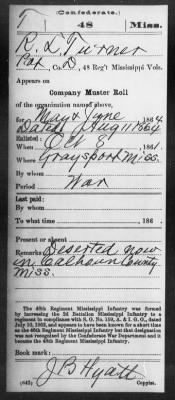 (Confederate.)
T 48 Miss.
R. L. Turner
Pvt, Co. D, 48 Reg't Mississippi Vols.
Appears on
Company Muster Roll
of the organization named above,
for May & June 1864
Dated Aug 11 1864
Enlisted:
When Oct 8, 1861.
Where Graysport Miss.
By whom
Period War
Last paid:
By whom
To what time , 186 .
Present or absent
Remarks: Deserted now
in Calhoun County
Miss.
The 48th Regiment Mississippi Infantry was formed
by increasing the 2d Battalion Mississippi Infantry to a
regiment in compliance with S. O. No. 159, A. & I. G. O., dated
July 10, 1863, and appears to have been known for a short time
as the 48th Regiment Mississippi Infantry but that designation
was not recognized by the Confederate War Department and it
became the 48th Regiment Mississippi Infantry.
Book mark:
J B Hyatt
(642) Copyist.